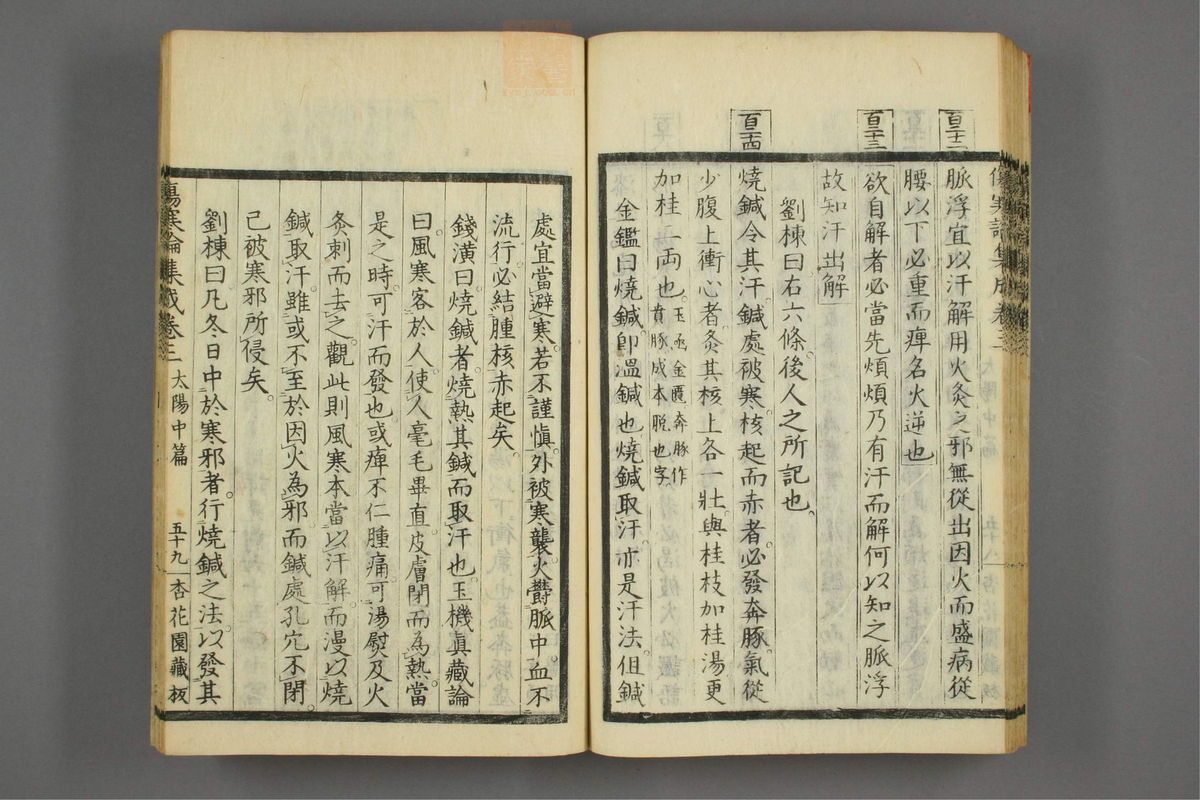 百二十二
脈浮宜以汗解用火灸之邪無從出因火而盛病從
腰以下必重而痺名火逆也
百二十三
欲自解者必當先煩煩乃有汗而解何以知之脈浮
故知汗出解
劉棟曰右六條後人之所記也
百二十四
燒鍼令其汗鍼處被寒核起而赤者必發奔豚氣從
少腹上衝心者灸其核上各一壯與桂枝加桂湯更
加桂二兩也
玉函金匱奔豚作
賁豚成本脫也字
金鑑曰燒鍼卽溫鍼也燒鍼取汗亦是汗法但鍼
傷寒論集成卷三
處宜當避寒若不謹愼外被寒襲火鬱脈中血不
流行必結腫核赤起矣
錢潢曰燒鍼者燒熱其鍼而取汗也玉機眞藏論
曰風寒客於人使人毫毛畢直皮膚閉而為熱當
是之時可汗而發也或痺不仁腫痛可湯熨及火
灸刺而去之觀此則風寒本當以汗解而漫以燒
鍼取汗雖或不至於因火為邪而鍼處孔穴不閉
已被寒邪所侵矣
劉棟曰凡冬日中於寒邪者行燒鍼之法以發其
傷寒論集成卷三 太陽中篇 五十九 杏花園藏板